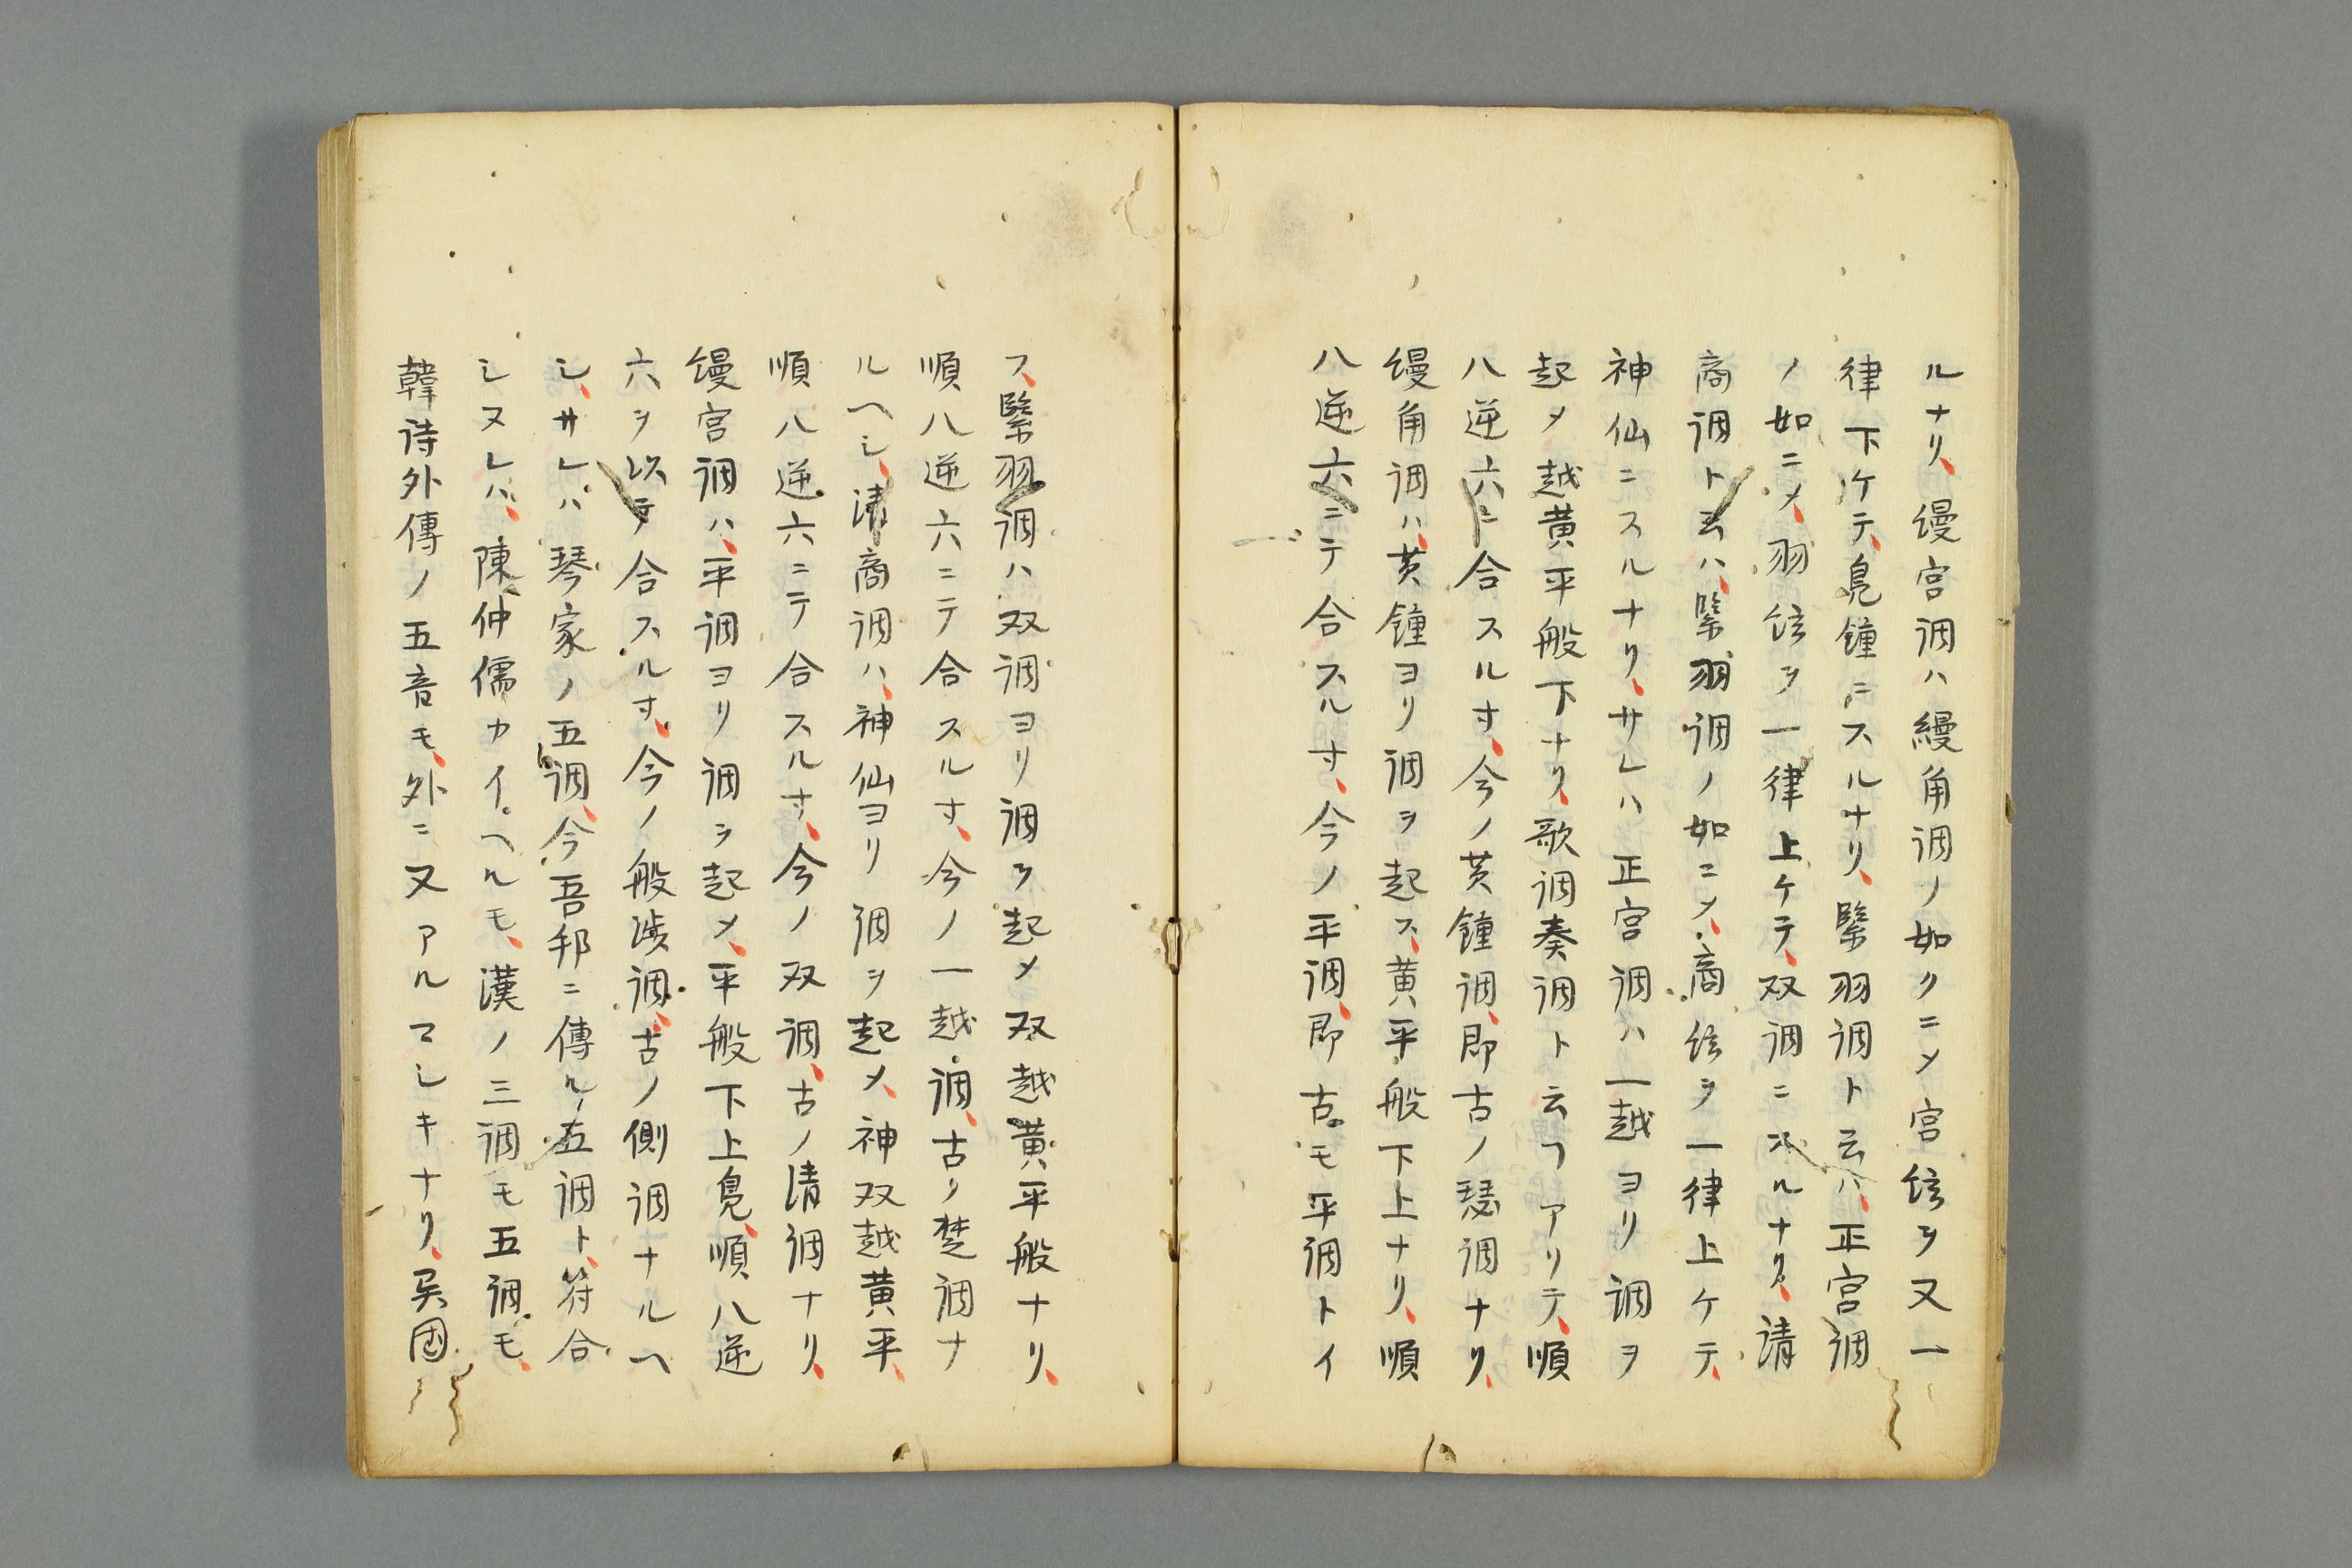 ルナリ、縵宮调ハ縵角调ノ如クニメ宮絃ヲ又一
律下ケテ、鳧鐘ニスルナリ、緊羽调ト云ハ、正宮调
ノ如ニメ、羽絃ヲ一律上ケテ、双调ニスルナリ、清
商调ト云ハ、緊羽调ノ如ニメ、商絃ヲ一律上ケテ、
神仙ニスルナリ、サレハ正宮调ハ一越ヨリ调ヲ
起メ越黄平般下ナリ、歌调奏调ト云フアリテ、順
八逆六ニ合スルヿ、今ノ黄鐘调、即古ノ瑟调ナリ、
縵角调ハ、黄鐘ヨリ调ヲ起ス、黄平般下上ナリ、順
八逆六ニテ合スルヿ、今ノ平调、即古モ平调トイ
フ、緊羽调ハ双调ヨリ调ヲ起メ双越黄平般ナリ、
順八逆六ニテ合スルヿ、今ノ一越调、古ノ楚调ナ
ルヘシ、清商调ハ、神仙ヨリ调ヲ起メ、神双越黄平、
順八逆六ニテ合スルヿ、今ノ双调、古ノ清调ナリ、
縵宮调ハ、平调ヨリ调ヲ起メ、平般下上鳧、順八逆
六ヲ以テ合スルヿ、今ノ般渉调、古ノ側调ナルヘ
シ、サレハ琴家ノ五调、今吾邦ニ傳ル五调ト、符合
シヌレハ、陳仲儒カイヘルモ、漢ノ三调モ五调モ、
韓诗外傳ノ五音モ、外ニ又アルマシキナリ、吴國